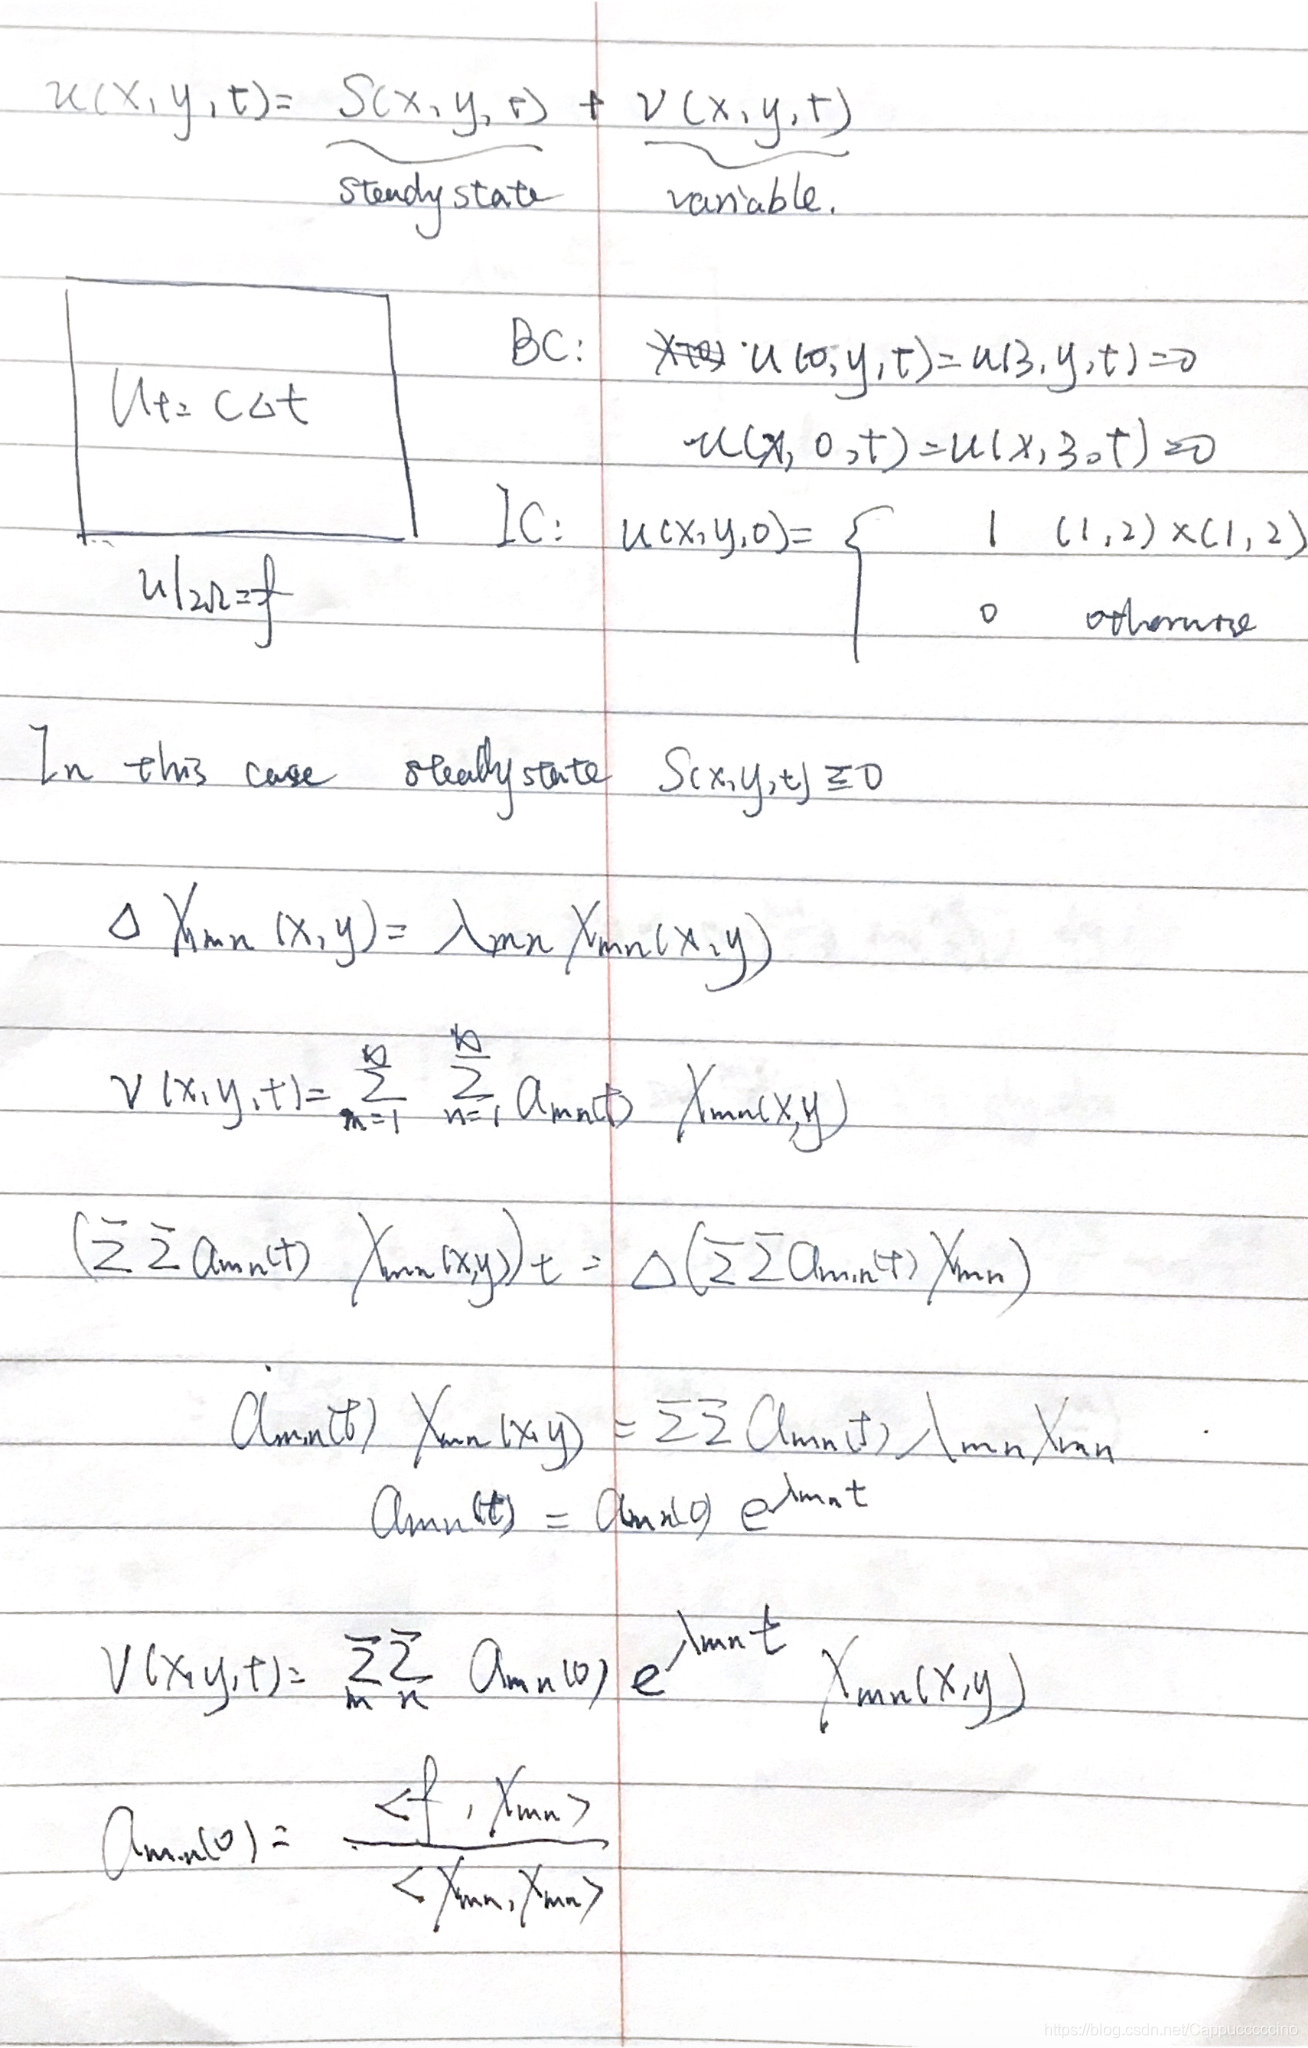 u(x,y,t)= S(x,y,t) + v(x,y,t)
steady state variable.
BC: u(0,y,t)=u(3,y,t)=0
Ut= c△t
u(x,0,t)=u(x,3,t)=0
IC: u(x,y,0)= { 1 (1,2)×(1,2)
0 otherwise
u|∂Ω=f
In this case steady state S(x,y,t)≡0
△ Xmn(x,y)= λmn Xmn(x,y)
v(x,y,t)= ∑m=1∞ ∑n=1∞ amn(t) Xmn(x,y)
(∑∑amn(t) Xmn(x,y))t = △(∑∑amn(t)Xmn)
ȧmn(t) Xmn(x,y) = ∑∑ amn(t) λmn Xmn
amn(t) = amn(0) e^λmn t
V(x,y,t)= ∑m∑n amn(0) e^λmn t Xmn(x,y)
amn(0)= <f , Xmn> / <Xmn,Xmn>
https://blog.csdn.net/Cappucccccino